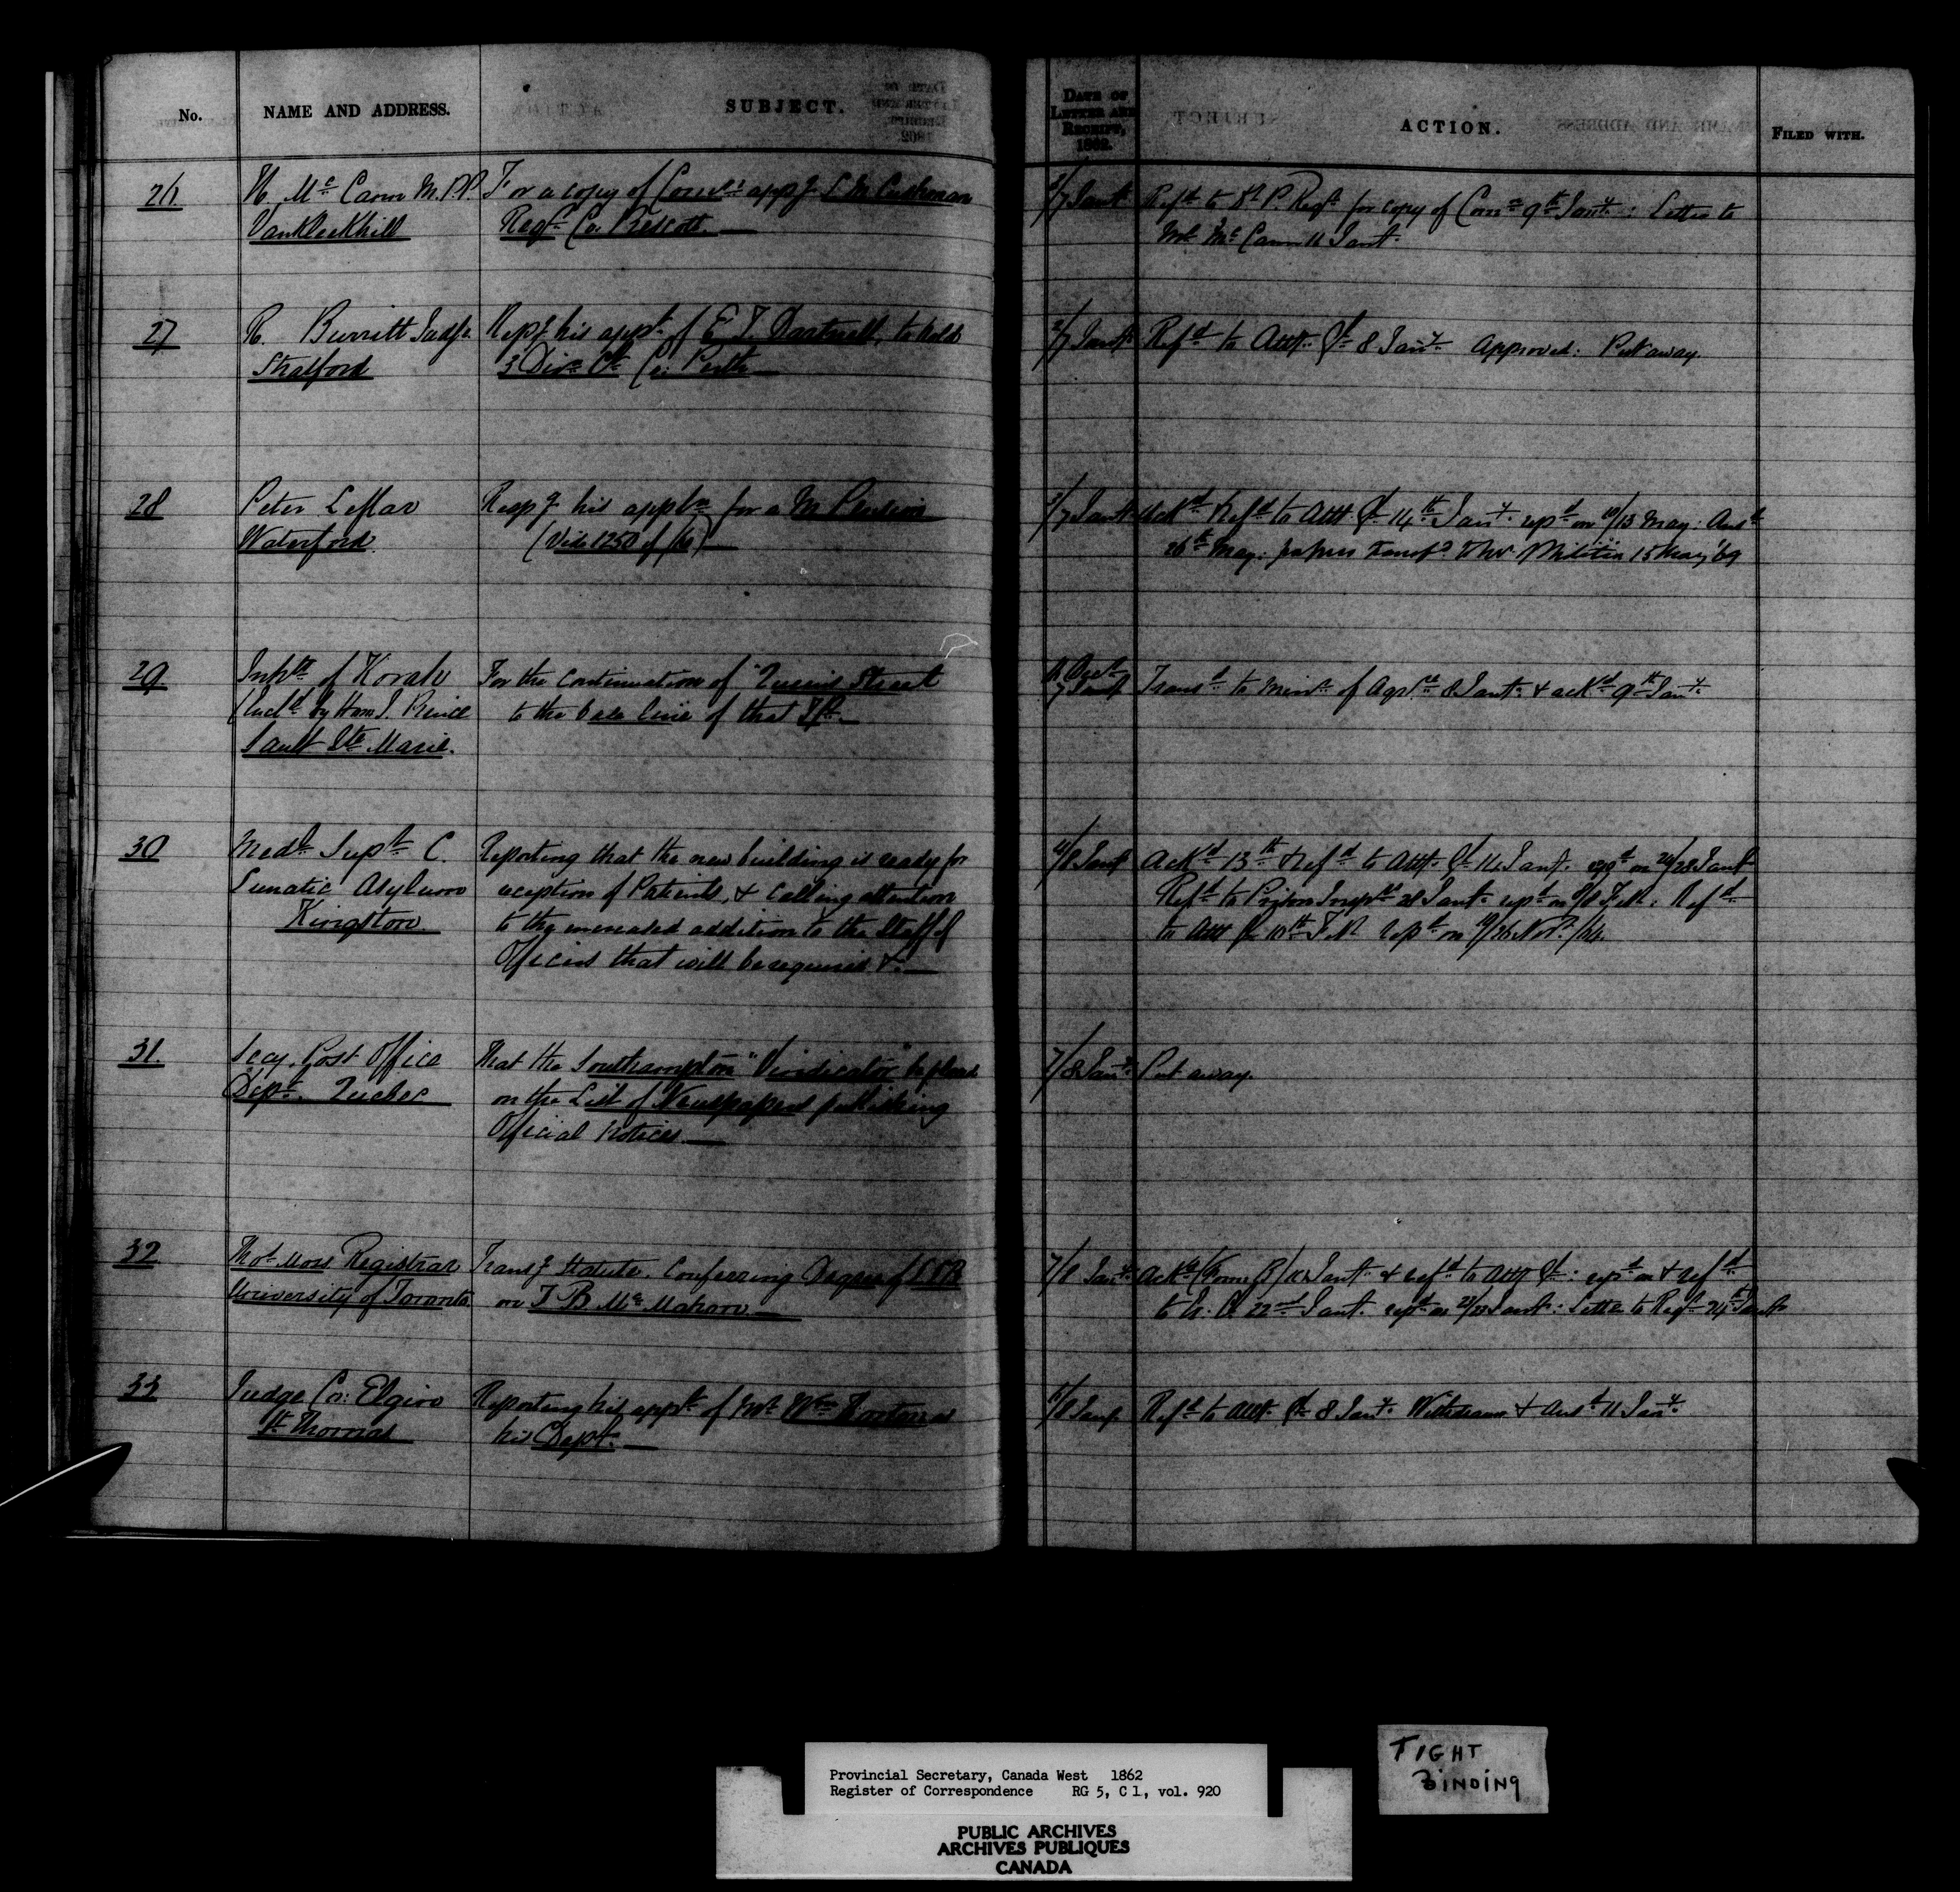 No.
NAME AND ADDRESS.
SUBJECT.
DATE OF
LETTER AND
RECEIPT,
1862.
ACTION.
FILED WITH.
26
H. McCann M.P.P.
Vankleekhill
For a copy of appg L M Cushman
Regr Co. Prescott.
7 Jany
Refd to P. Regr for copy of Comn 9th Jany: Letter to
Mr McCann 11 Jany.
27
R. Burritt Judge
Stratford
Repg his appt of E. T. Dartnell, to hold
3 Divn Ct Co: Perth
7 Jany
Refd to Atty Gl 8 Jany. Approved: Put away.
28
Peter Leflar
Waterford.
Respg his appln for a M Pension
(Vide 1250 of /61)
3/7 Jany
Ackd Refd to Atty Gl 14th Jany. repd on 10/13 May: Ansd
26th May: papers Transfd to Militia 15 May '69
29
Inhts of Korah
(Incld by Hon J. Prince
Sault Ste Marie.
For the continuation of "Queen's Street
to the base line of that Tp.
7 Jany
Transd to Minr of Agrre 8 Jany & ackd 9th Jany.
30
Medl Supt C.
Lunatic Asylum
Kingston.
Reporting that the new building is ready for
reception of Patients, & calling attention
to the increased addition to the Staff of
Officers that will be required &c.
4/8 Jany
Ackd 13th & Refd to Atty Gl 14 Jany. repd on 24/28 Jany
Refd to Prison Insprs 28 Jany repd on 8 Feb: Refd
to Atty Gl 10th Feb. repd on 19/26 Novr /64.
31.
Secy. Post Office
Dept. Quebec
That the Southampton "Vindicator" be placed
on the List of Newspapers publishing
Official Notices
7/8 Jany
Put away.
32
Thos Moss Registrar
University of Toronto
Transg Statute. Conferring Degree of LLB
on T B McMahon.
7/8 Jany
Ackd (Form B) Jany. & refd to Atty Gl: repd on & refd
to 22nd Jany. repd on 22/23 Jany: Letter to Regr 24th Jany
33
Judge Co: Elgin
St Thomas
Reporting his appt of Mr Wm Horton as
his Depy.
6/8 Jany
Refd to Atty Gl 8 Jany. Withdrawn & Ansd 11 Jany.
Provincial Secretary, Canada West 1862
Register of Correspondence RG 5, C 1, vol. 920
PUBLIC ARCHIVES
ARCHIVES PUBLIQUES
CANADA
TIGHT
BINDING